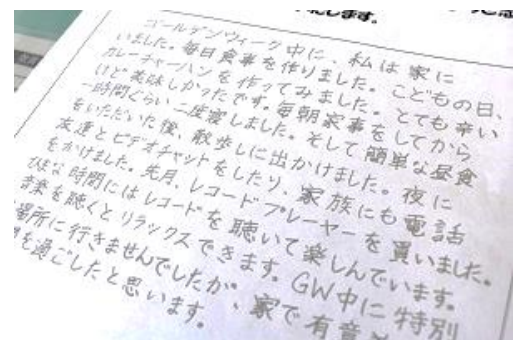 たします。
ゴールデンウィーク中に、私は家に
いました。毎日食事を作りました。こどもの日、
カレーチャーハンを作ってみました。とても辛い
けど美味しかったです。毎朝家事をしてから
一時間ぐらい二度寝しました。そして簡単な昼食
をいただいた後、散歩しに出かけました。夜に
友達とビデオチャットをしたり、家族にも電話
をかけました。先月、レコードプレーヤーを買いました。
ひまな時間にはレコードを聴いて楽しんでいます。
音楽を聴くとリラックスできます。GW中に特別
場所に行きませんでしたが、家で有意
を過ごしたと思います。